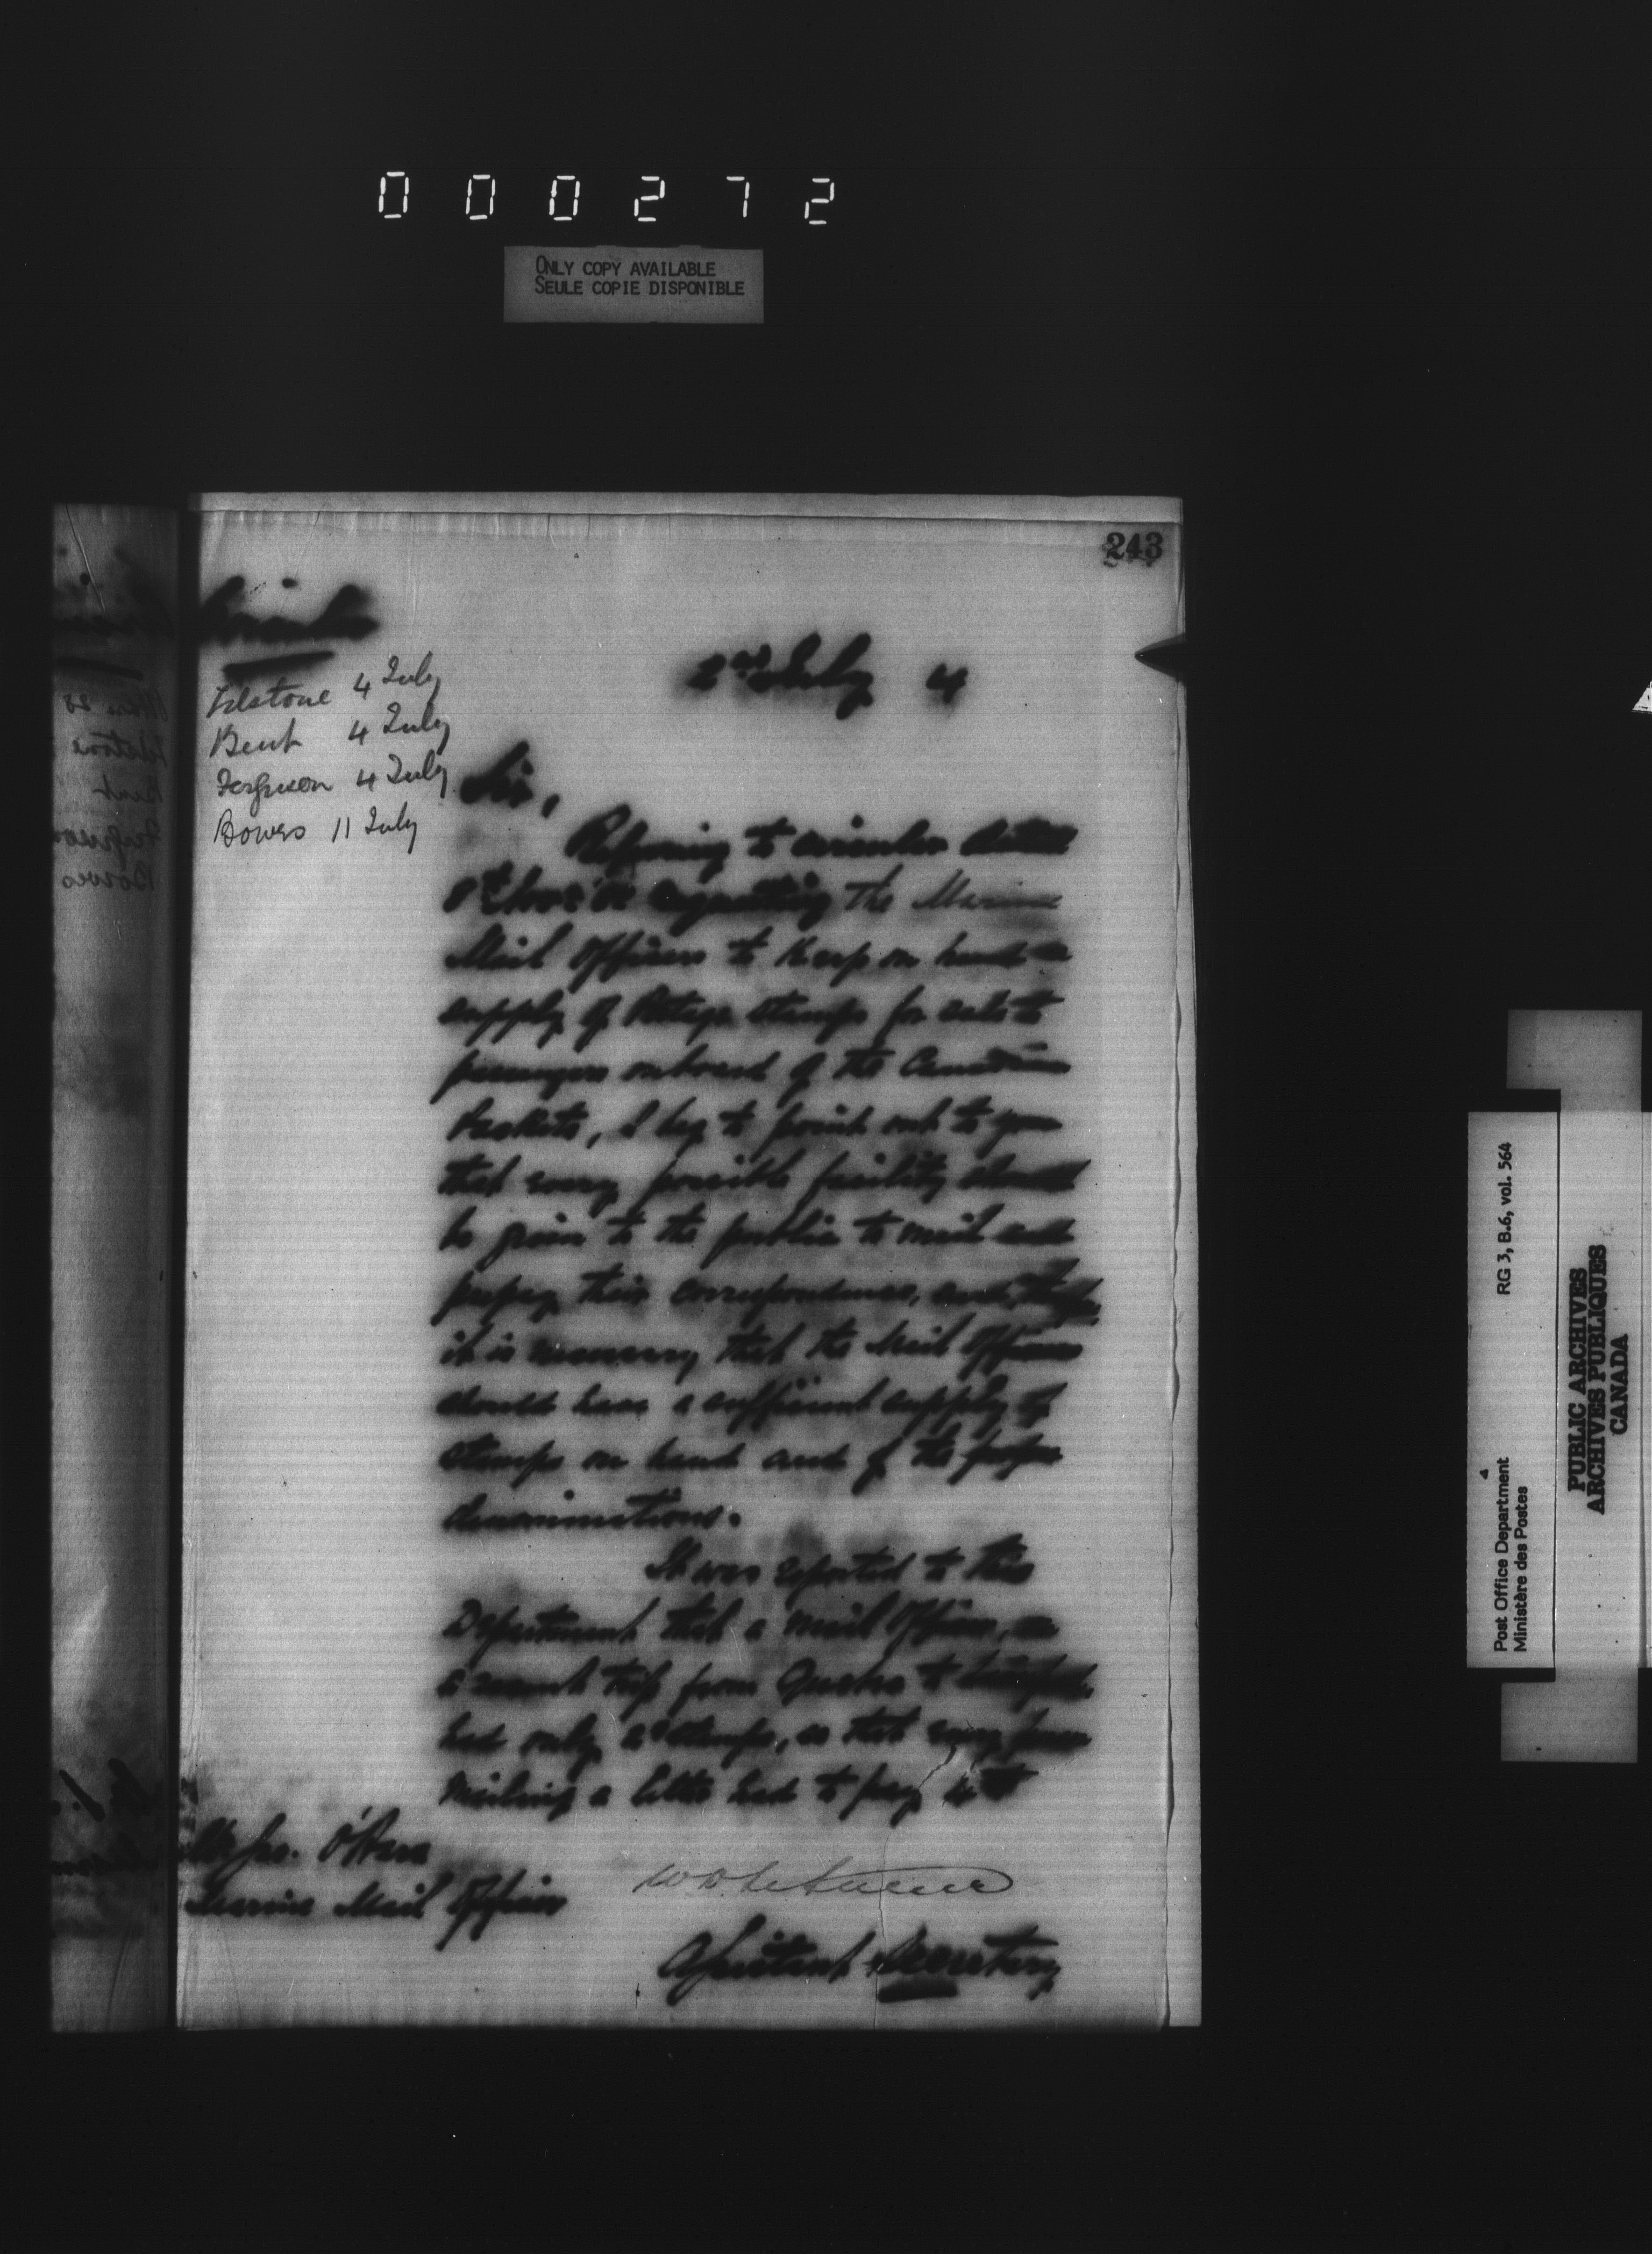 000272
ONLY COPY AVAILABLE
SEULE COPIE DISPONIBLE
243
Circular
2nd July 4
4 July
Bent 4 July
Ferguson 4 July
Bowes 11 July
Sir,
Referring to circular dated
requesting the Marine
Mail Officers to keep on hand a
supply of Postage stamps for sale to
passengers onboard of the Canadian
Packets, I beg to point out to you
that every possible facility should
be given to the public to mail and
prepay their correspondence, and
it is necessary that the Mail Officers
should have a sufficient supply of
stamps on hand and of the proper
denominations.
It was reported to this
Department that a Mail Officer, on
a recent trip from Quebec to
had only 2c stamps, so that every
mailing a letter had to pay
O'Hara
Marine Mail Officer
Assistant Secretary
Post Office Department
Ministère des Postes
RG 3, B.6, vol. 564
4
PUBLIC ARCHIVES
ARCHIVES PUBLIQUES
CANADA